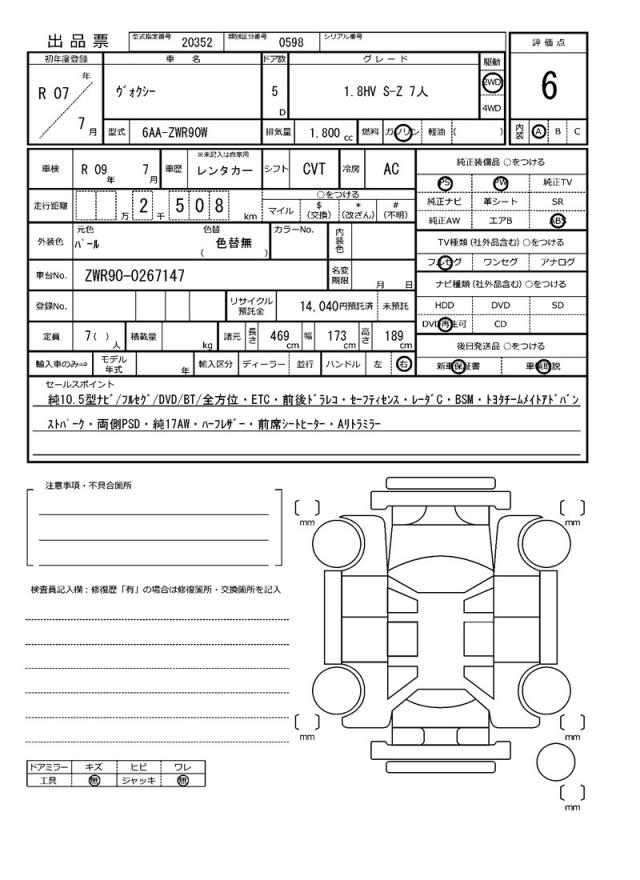 出品票 型式指定番号 20352 類別区分番号 0598 シリアル番号
評価点
6
内装 A B C
初年度登録 車名 ドア数 グレード 駆動
R 07 年 7 月 ヴォクシー 5 D 1.8HV S-Z 7人 2WD 4WD
型式 6AA-ZWR90W 排気量 1.800 cc 燃料 ガソリン 軽油 ( )
車検 R 09 年 7 月 車歴 ※未記入は自家用 レンタカー シフト CVT 冷房 AC
走行距離 万 2 千 5 0 8 km
○をつける
マイル $ (交換) * (改ざん) # (不明)
外装色 元色 パール 色替 色替無 ( ) カラーNo. 内装色
車台No. ZWR90-0267147 名変期限 月 日
登録No. リサイクル預託金 14,040円預託済 未預託
定員 7( )人 積載量 kg 諸元 長さ 469 cm 幅 173 cm 高さ 189 cm
輸入車のみ⇒ モデル年式 年 輸入区分 ディーラー 並行 ハンドル 左 右
純正装備品 ○をつける
PS PW 純正TV
純正ナビ 革シート SR
純正AW エアB ABS
TV種類(社外品含む)○をつける
フルセグ ワンセグ アナログ
ナビ種類(社外品含む)○をつける
HDD DVD SD
DVD再生可 CD
後日発送品 ○をつける
新車保証書 車輌取説
セールスポイント
純10.5型ナビ/フルセグ/DVD/BT/全方位・ETC・前後ドラレコ・セーフティセンス・レーダC・BSM・トヨタチームメイトアドバン
ストパーク・両側PSD・純17AW・ハーフレザー・前席シートヒーター・Aリトラミラー
注意事項・不具合箇所
検査員記入欄：修復歴「有」の場合は修復箇所・交換箇所を記入
ドアミラー キズ ヒビ ワレ
工具 無 ジャッキ 無
mm
mm
mm
mm
mm